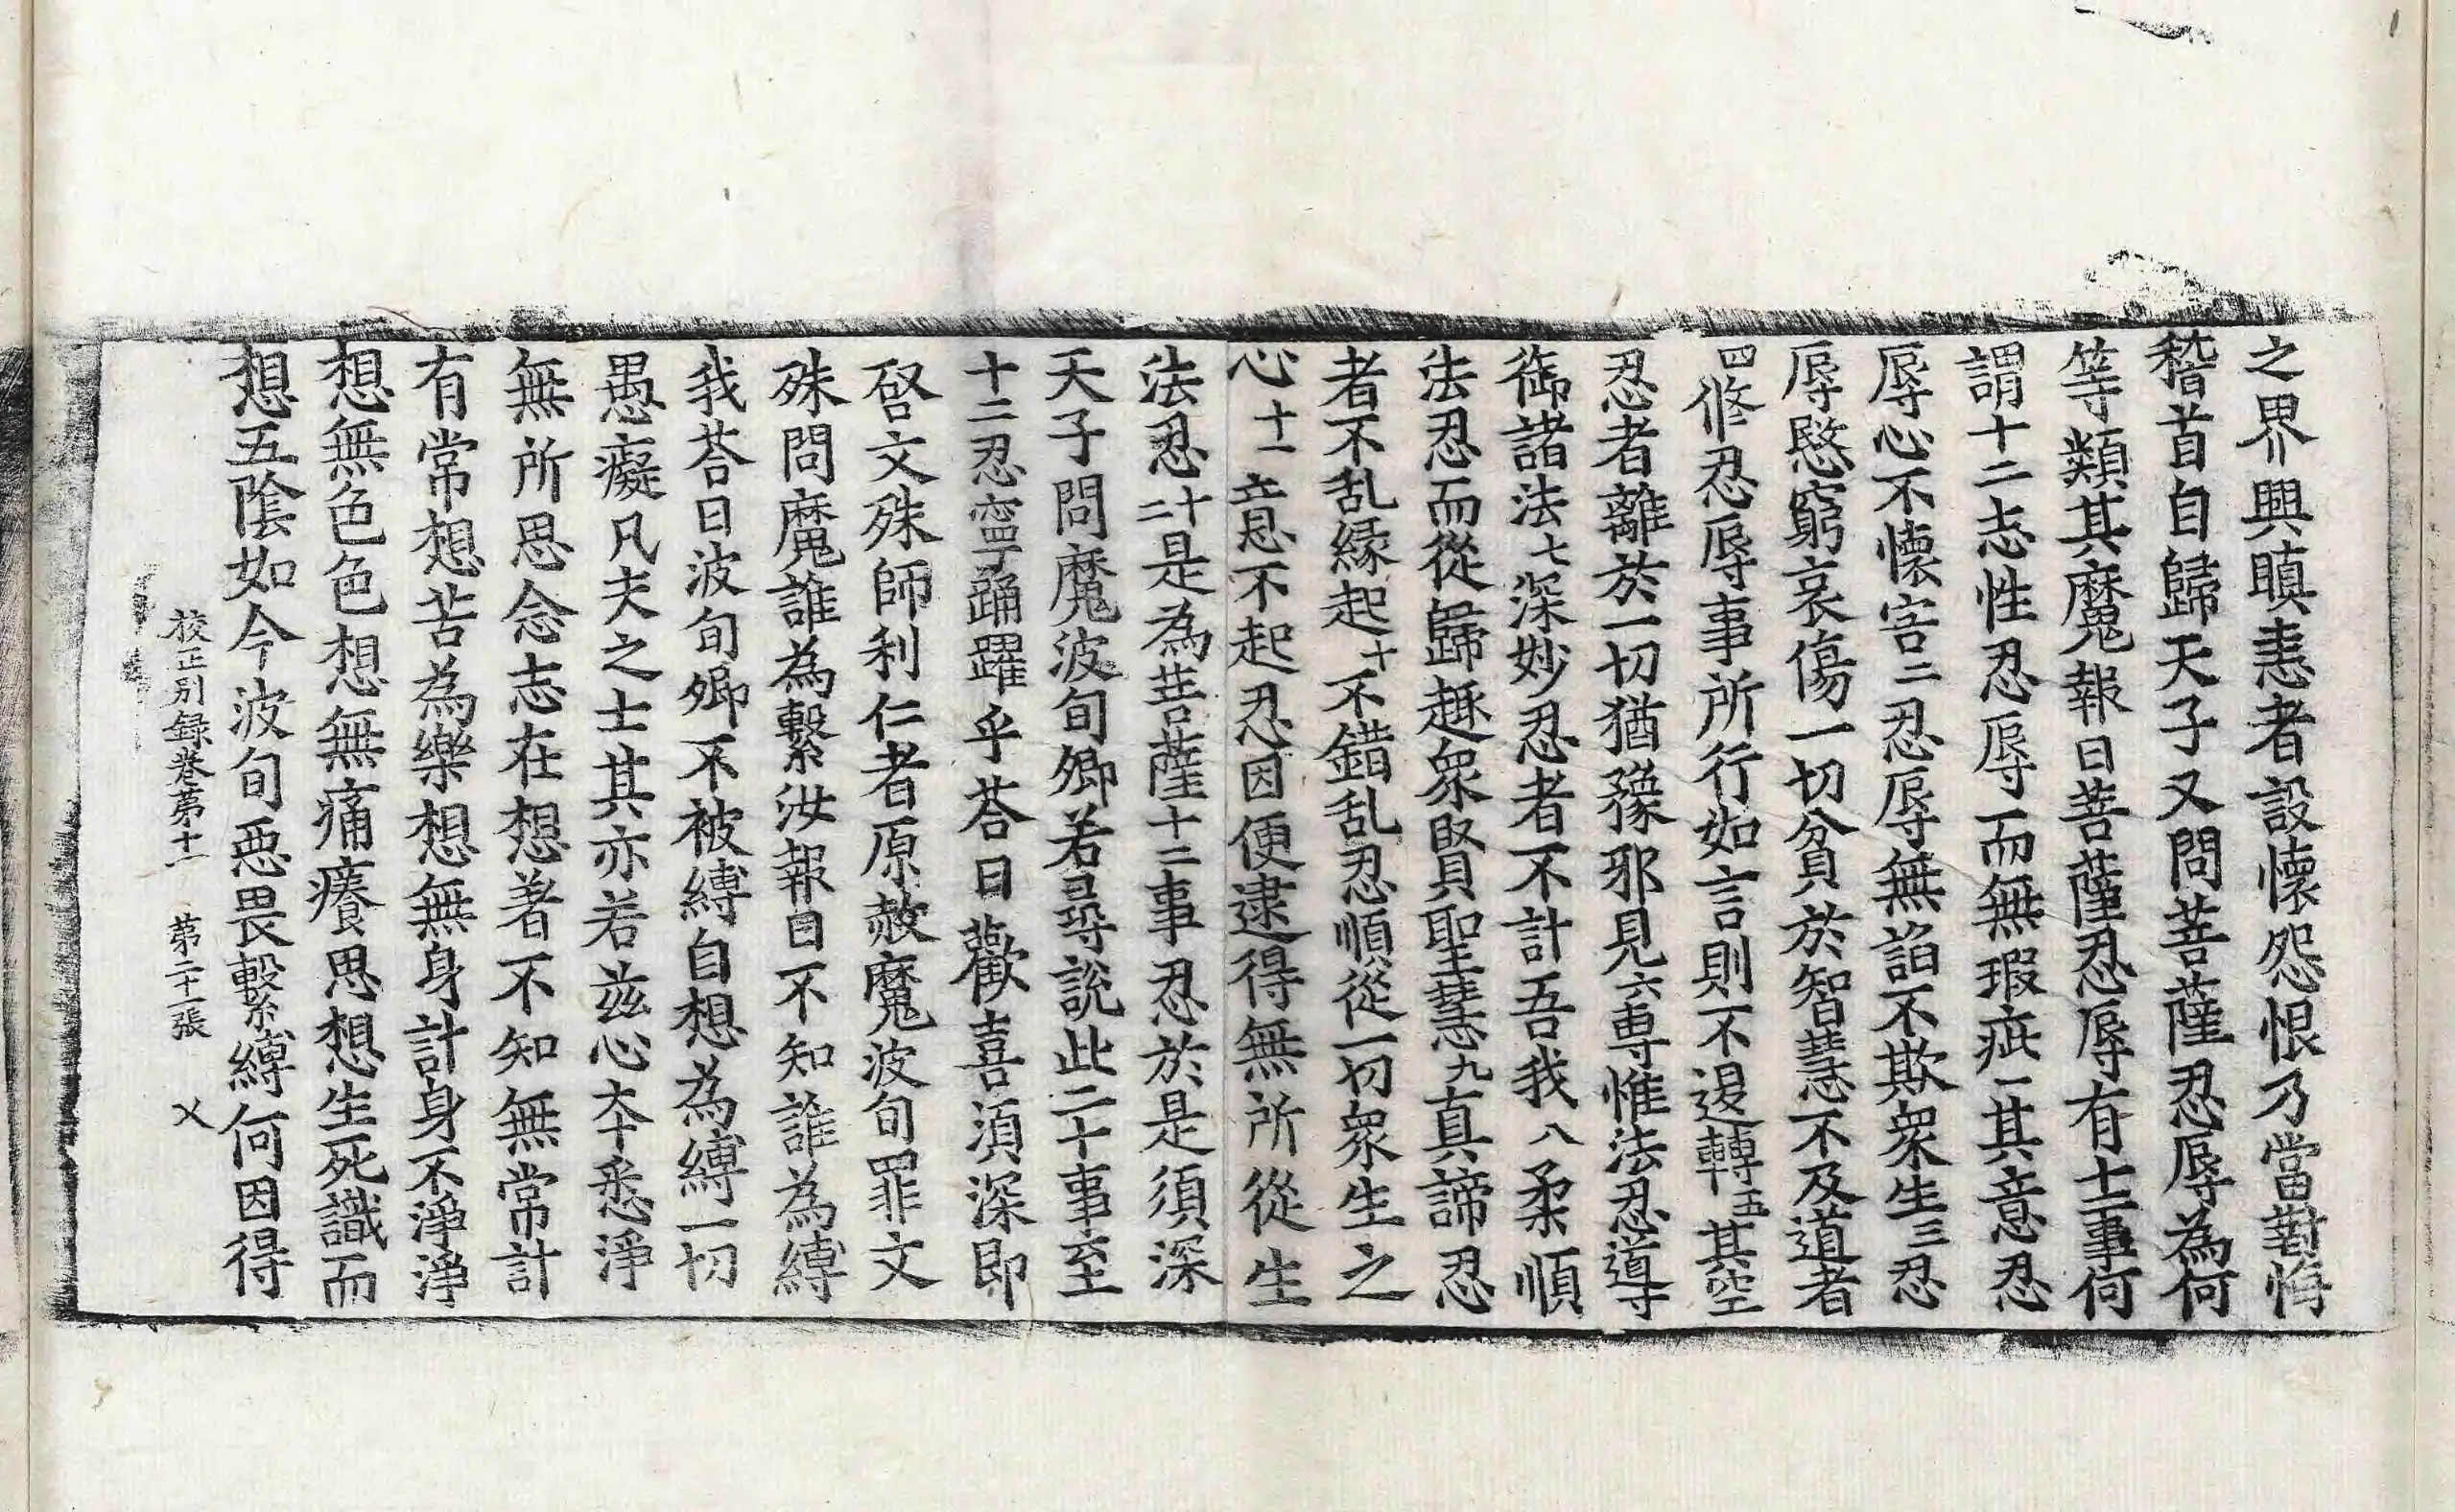 之界興瞋恚者設懷怨恨乃當對悔
稽首自歸天子又問菩薩忍辱為何
等類其魔報曰菩薩忍辱有十二事何
謂十二志性忍辱而無瑕疵一其意忍
辱心不懷害二忍辱無諂不欺衆生三忍
辱愍窮哀傷一切貧於智慧不及道者
四修忍辱事所行如言則不退轉五其空
忍者離於一切猶豫邪見六專惟法忍導
御諸法七深妙忍者不計吾我八柔順
法忍而從歸趣衆賢聖慧九真諦忍
者不乱縁起十不錯乱忍順從一切衆生之
心十一意不起忍因便逮得無所從生
法忍十二是為菩薩十二事忍於是須深
天子問魔波旬卿若尋說此二十事至
十二忍寧踊躍乎荅曰歡喜湏深即
啓文殊師利仁者原赦魔波旬罪文
殊問魔誰為繫汝報曰不知誰為縛
我荅曰波旬卿不被縛自想為縛一切
愚癡凡夫之士其亦若兹心本悉淨
無所思念志在想著不知無常計
有常想苦為樂想無身計身不淨淨
想無色色想無痛痛癢思想生死識而
想五陰如今波旬惡畏繫縛何因得
校正别録卷第十一　第二十一張　乂